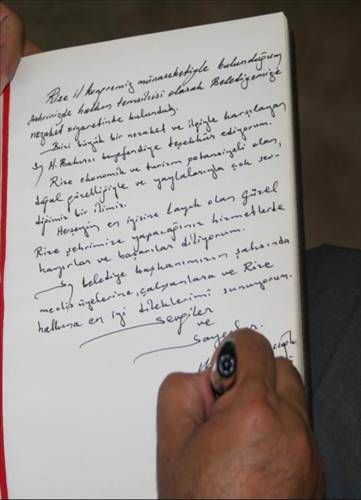 Rize il kongremiz münasebetiyle bulunduğum
şehrinizde halkın temsilcisi olarak Belediyemize
nezaket ziyaretinde bulunduk.
Bizi büyük bir nezaket ve ilgiyle karşılayan
Sy H. Bakırcı beyefendiye teşekkür ediyorum.
Rize ekonomik ve turizm potansiyeli olan,
doğal güzelliğiyle ve yaylalarıyla çok sev-
diğimiz bir ilimiz.
Herşeyin en iyisine layık olan güzel
Rize şehrimize yapacağınız hizmetlerde
hayırlar ve başarılar diliyorum.
Sy belediye başkanımızın şahsında
meclis üyelerine, çalışanlara ve Rize
halkına en iyi dileklerimi sunuyorum.
Sevgiler
ve